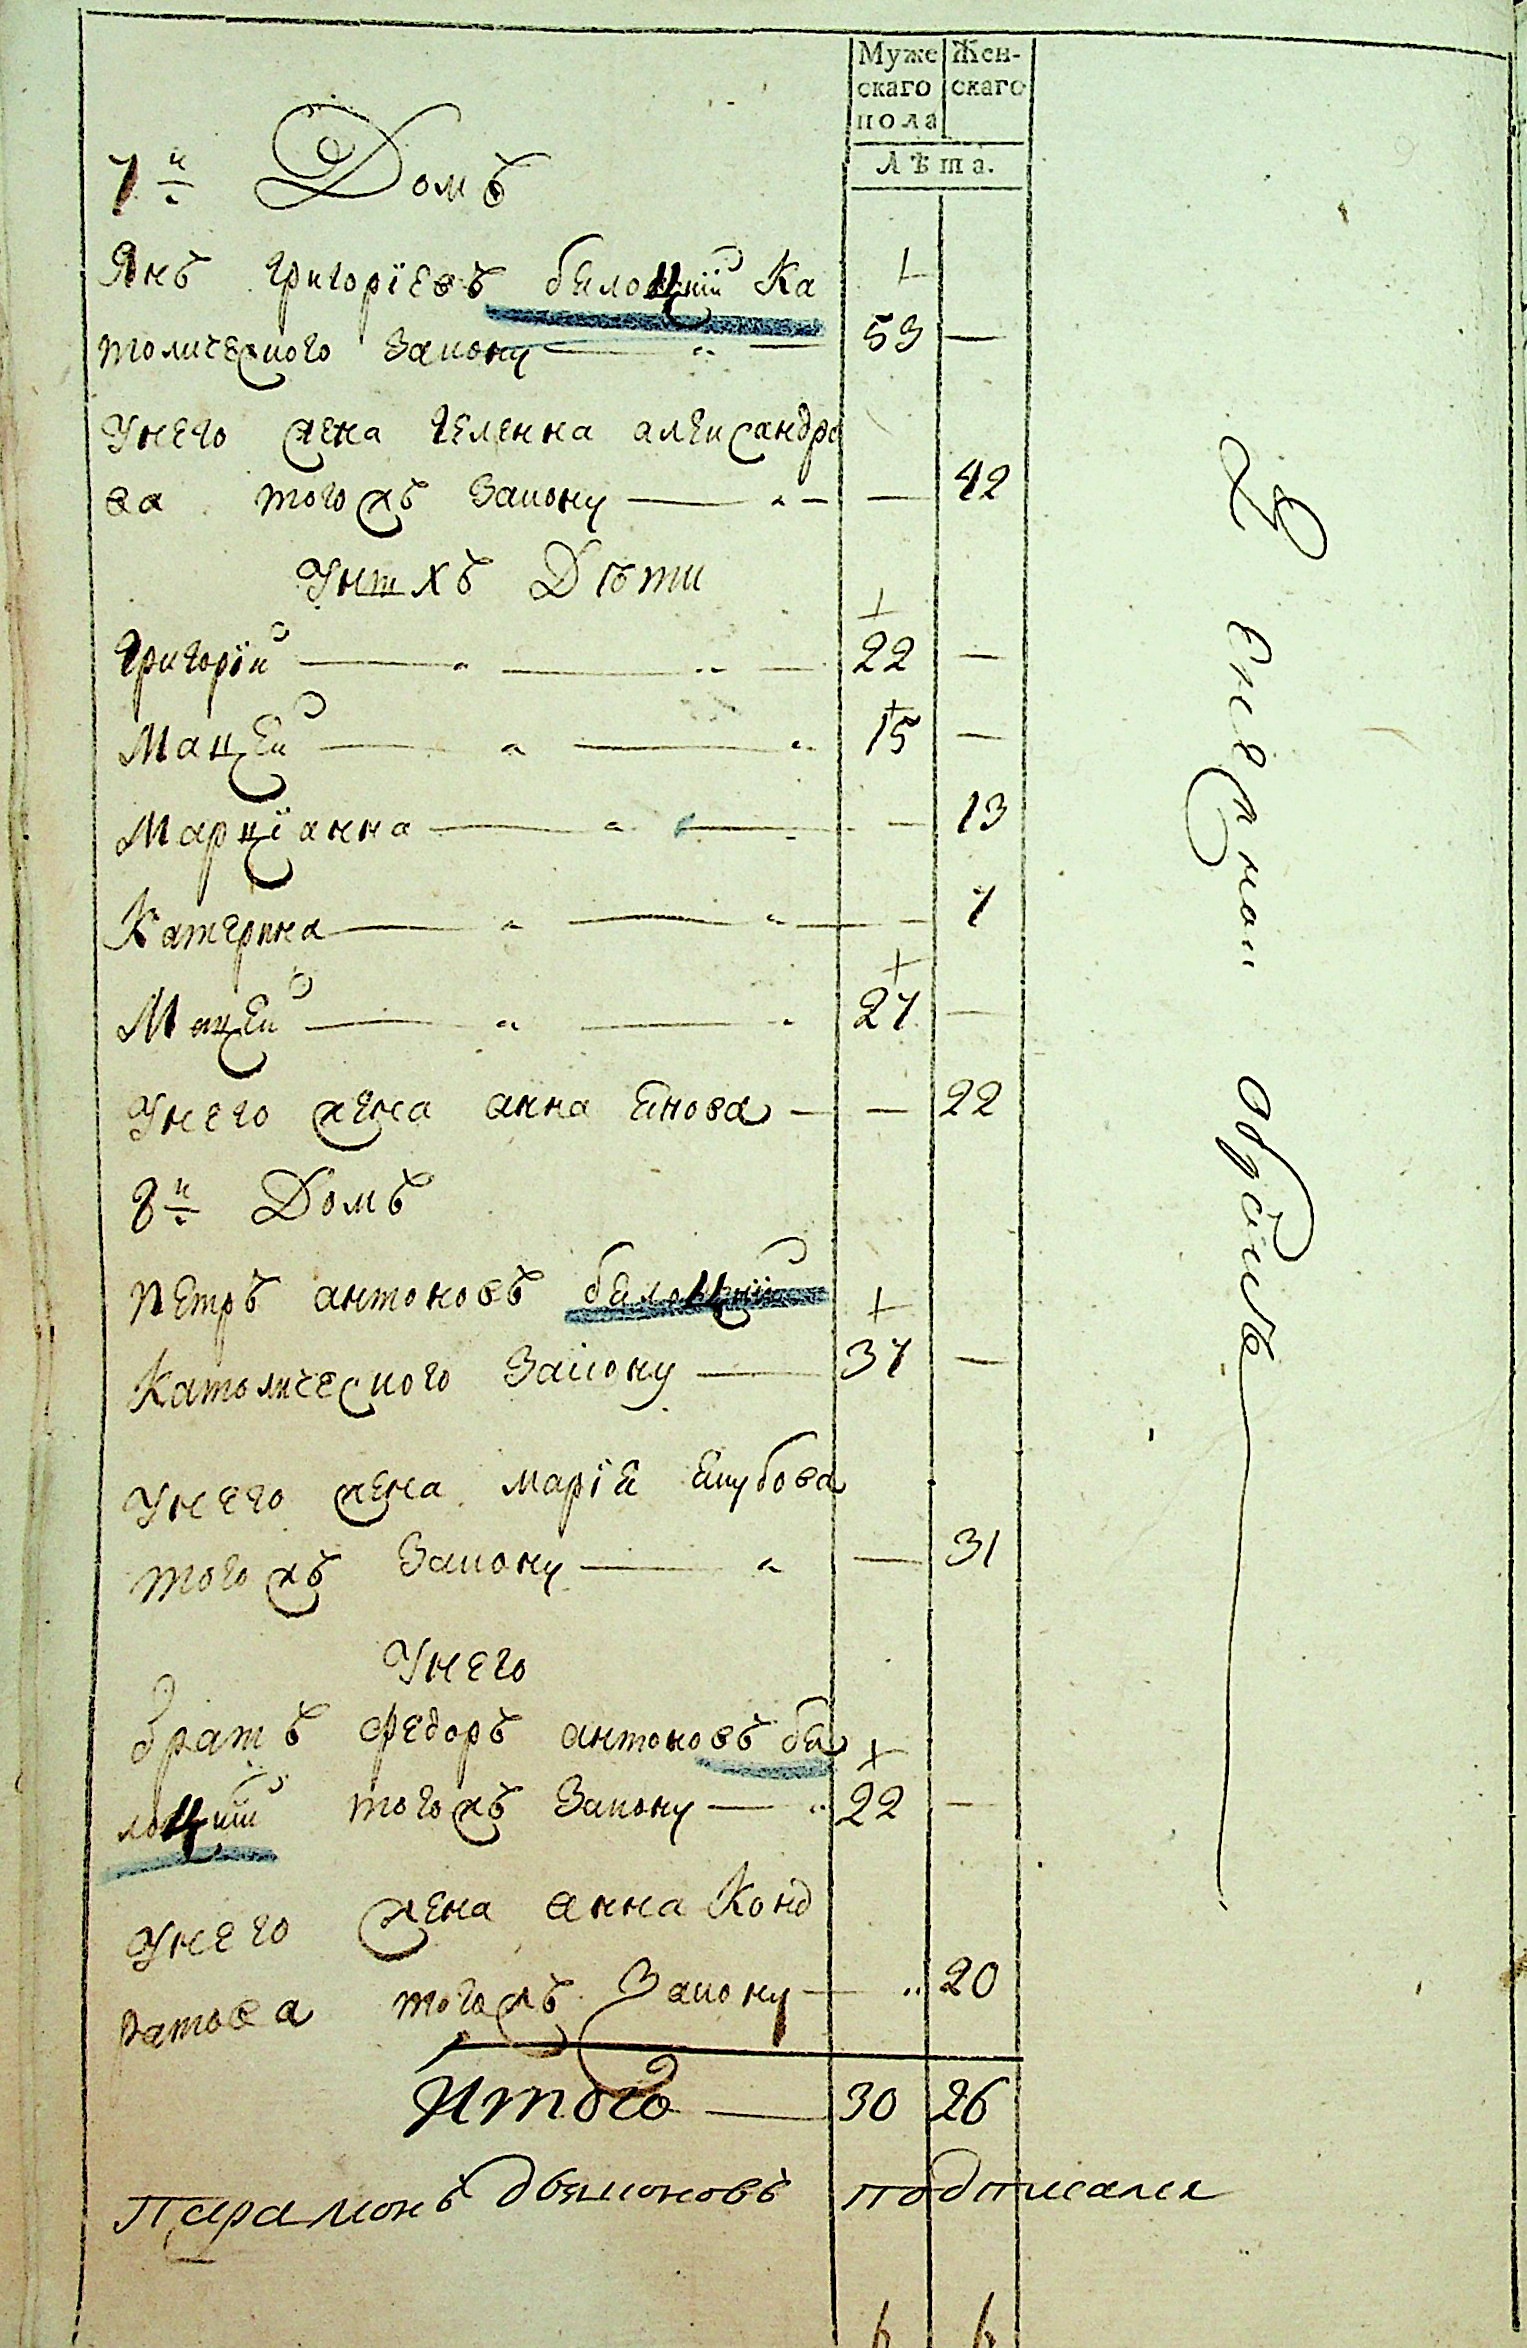 Муже Жен-
скаго скаго
пола
Лѣта.
7й Домъ
Янъ Григорїевъ белоцкїй Ка
толического Закону — 53 —
Унего жена Геленна александро
ва тогожъ Закону — — 42
Унихъ Дѣти
Григорїй — 22 —
Мацей — 15 —
Марцїанна — — 13
Катерина — — 7
Мацей — 27 —
Унего жена анна Янова — — 22
8й Домъ
Петръ антоновъ белоцкїй
Католического Закону — 37 —
Унего жена марїя якубова
тогожъ Закону — — 31
Унего
братъ федоръ антоновъ бе
лоцкїй тогожъ Закону — 22 —
Унего жена анна Конд
ратова тогожъ Закону — 20
Итого — 30 26
Парамонъ подписался